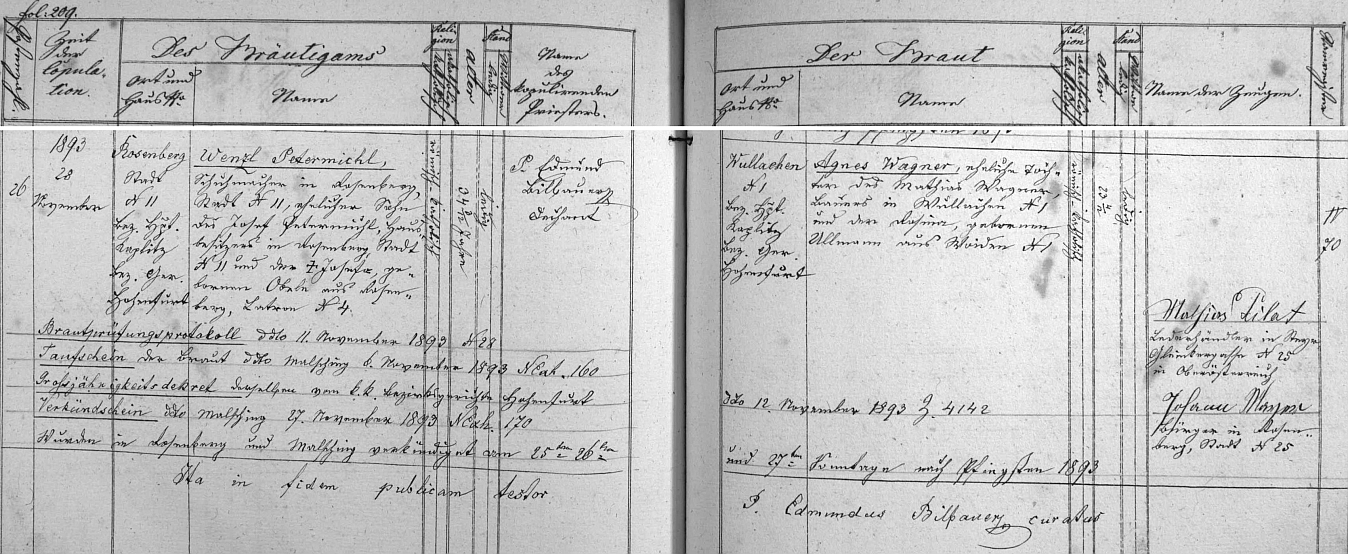 fol: 209.
Zeit
der
Copula-
tion.
Des Bräutigams
Ort und
Haus No
Name
Reli
gion
Alter
Stand
Name
des
kopulirenden
Priesters.
Der Braut
Ort und
Haus No
Name
Reli
gion
Alter
Stand
Name der Zeugen.
1893
28
November
26
Rosenberg
Stadt
N 11
Bez. Hpt.
Kaplitz
Bez. Ger.
Hohenfurt
Wenzl Petermichl,
Schuhmacher in Rosenberg,
Stadt N 11, ehelicher Sohn
des Josef Petermichl, Haus
besitzers in Rosenberg, Stadt
N 11 und der † Josefa, ge-
bornen Obele aus Rosen-
berg, Latron N 4.
ledig
P. Edmund
Bilbauer
Dechant
Wullachen
N 1
Bez. Hpt.
Kaplitz
Bez. Ger.
Hohenfurt
Agnes Wagner, eheliche Toch-
ter des Mathias Wagner,
Bauers in Wullachen N 1
und der Rosina, gebornen
Ullmann aus Woiden N 1
ledig
70
Mathias Pilat
Lederhändler in Steyr
N 25
in Oberösterreich
Johann
Bürger in Rosen-
berg, Stadt N 25
Brautprüfungsprotokoll ddto 11. November 1893 N 28
Taufschein der Braut ddto Malsching 6. November 1893 NExh. 160
Großjährigkeitsdekret derselben vom k.k. Bezirksgerichte Hohenfurt
ddto 12. November 1893 Z. 4142
Verkündschein ddto Malsching 27. November 1893 NExh. 170
Wurden in Rosenberg und Malsching verkündiget am 25ten 26ten
und 27ten Sonntage nach Pfingsten 1893
Ita in fidem publicam testor.
P. Edmundus Bilbauer curatus